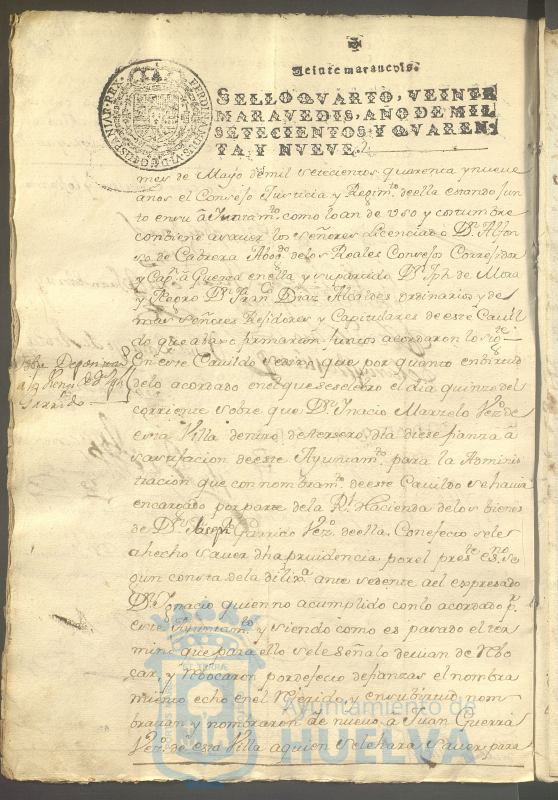 Veinte maravedis.
SELLO QVARTO, VEINTE
MARAVEDIS, AÑO DE MIL
SETECIENTOS Y QVAREN-
TA Y NVEVE.
mes de Mayo de mil setecientos quarenta y nueve
anos el Consejo Justicia y Regimto. de ella estando jun
to en su Aiuntamto. como lo an de uso y costumbre
combiene a saver los señores Licenciado Dn. Alfon
so de Cabrera Abogdo. de los Reales Consejos Correjidor
y Capn. a Guerra en ella y su partido Dn. Jph. de Mora
y Negro Dn. Franco. Diaz Alcaldes ordinarios y de
mas señores Rejidores y Capitulares de este Cavil
do que avajo firmaran juntos acordaron lo sigte.
En este Cavildo se dijo que por quanto en virtud
de lo acordado en el que se selebro el dia quinse del
corriente sobre que Dn. Inacio Marzelo Vezo. de
esta Villa dentro de tersero dia diese fianza a
satisfacion de este Ayuntamto. para la Adminis
tracion que con nombramto. de este Cavildo se havia
encargado por parte de la Rl. Hacienda de los bienes
de Dn. Joseph Garrido Vezo. de ella. Con efecto se les
a hecho saver dha providencia por el preste. esno. se
gun consta de la dilixa. ante sedente a el expresado
Dn. Ignacio quien no a cumplido con lo acordado pr.
este Ayuntamto. y siendo como es pasado el ter
mino que para ello se le señalo devian de Rebo
car, y Rebocaron por defecto de fianzas el nombra
miento echo en el Referido, y en su birtud nom
bravan y nombraron de nuevo a Juan Guerra
Vezo. de esta Villa a quien se le hara saver para
Ayuntamiento de
HUELVA